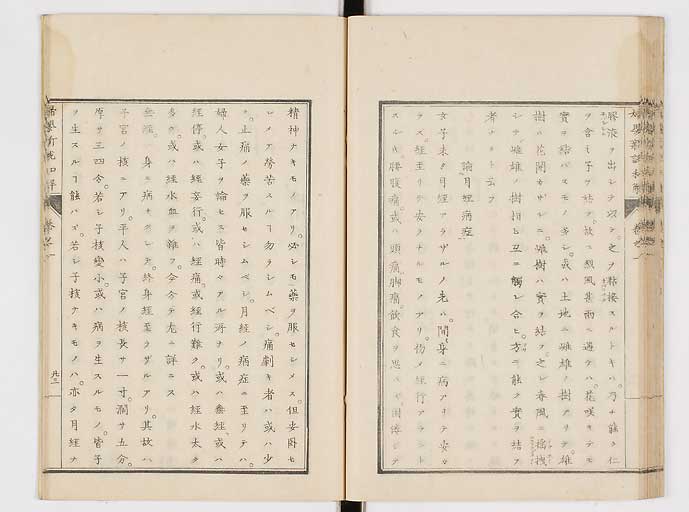 膠液ヲ出シテ以テ之ヲ黏接スルトキハ乃チ能ク仁
ヲ含ミ子ヲ結ブ故ニ烈風甚雨ニ遇テハ花嘆キテモ
實ヲ結バスモノ多シ或ハ土地ニ雄雌ノ樹アリテ雄
樹ハ花開カザレバ雌樹ハ實ヲ結ブ之レ春風ニ揺拽
シテ雌雄ノ樹相ヒ互ニ觸レ合ヒ方ニ能ク實ヲ結ブ
者ナリト云フ
論月經病症
女子未タ月經アラザルノ先ハ間身ニ病アリテ安カ
ラズ經至リテ安クナルモノアリ偖ノ經行アラント
スルヤ腰腹痛或ハ頭痛脚痛飲食ヲ思ハス困倦シテ
精神ナキモノアリ必シモ藥ヲ服セシメス但安臥セ
シメテ勞苦スルヿ勿ラシムベシ痛劇キ者ハ或ハ少
ク止痛ノ藥ヲ服セシムベシ月經ノ病症ニ至リテハ
婦人女子ヲ論セス皆時々アル所ナリ或ハ無經或ハ
經停或ハ經妄行或ハ經痛或經行難ク或ハ經水太タ
多ク或ハ經水血ヲ雜フ今分テ左ニ詳ニス
無經一身ニ病ナクシテ終身經至ラザルアリ其故ハ
子宮ノ核ニアリ平人ハ子宮ノ核長サ一寸濶サ五分
厚サ三四分若シ子核變小或ハ病ヲ生スルモノ皆子
ヲ生スルヿ能ハズ若シ子核ナキモノハ亦タ月經ナ
廿二